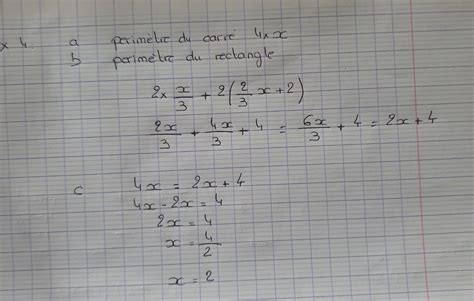 x 4. a périmètre du carré 4 × x
b périmètre du rectangle
2 × x/3 + 2(2/3 x + 2)
2x/3 + 4x/3 + 4 = 6x/3 + 4 = 2x + 4
c 4x = 2x + 4
4x - 2x = 4
2x = 4
x = 4/2
x = 2